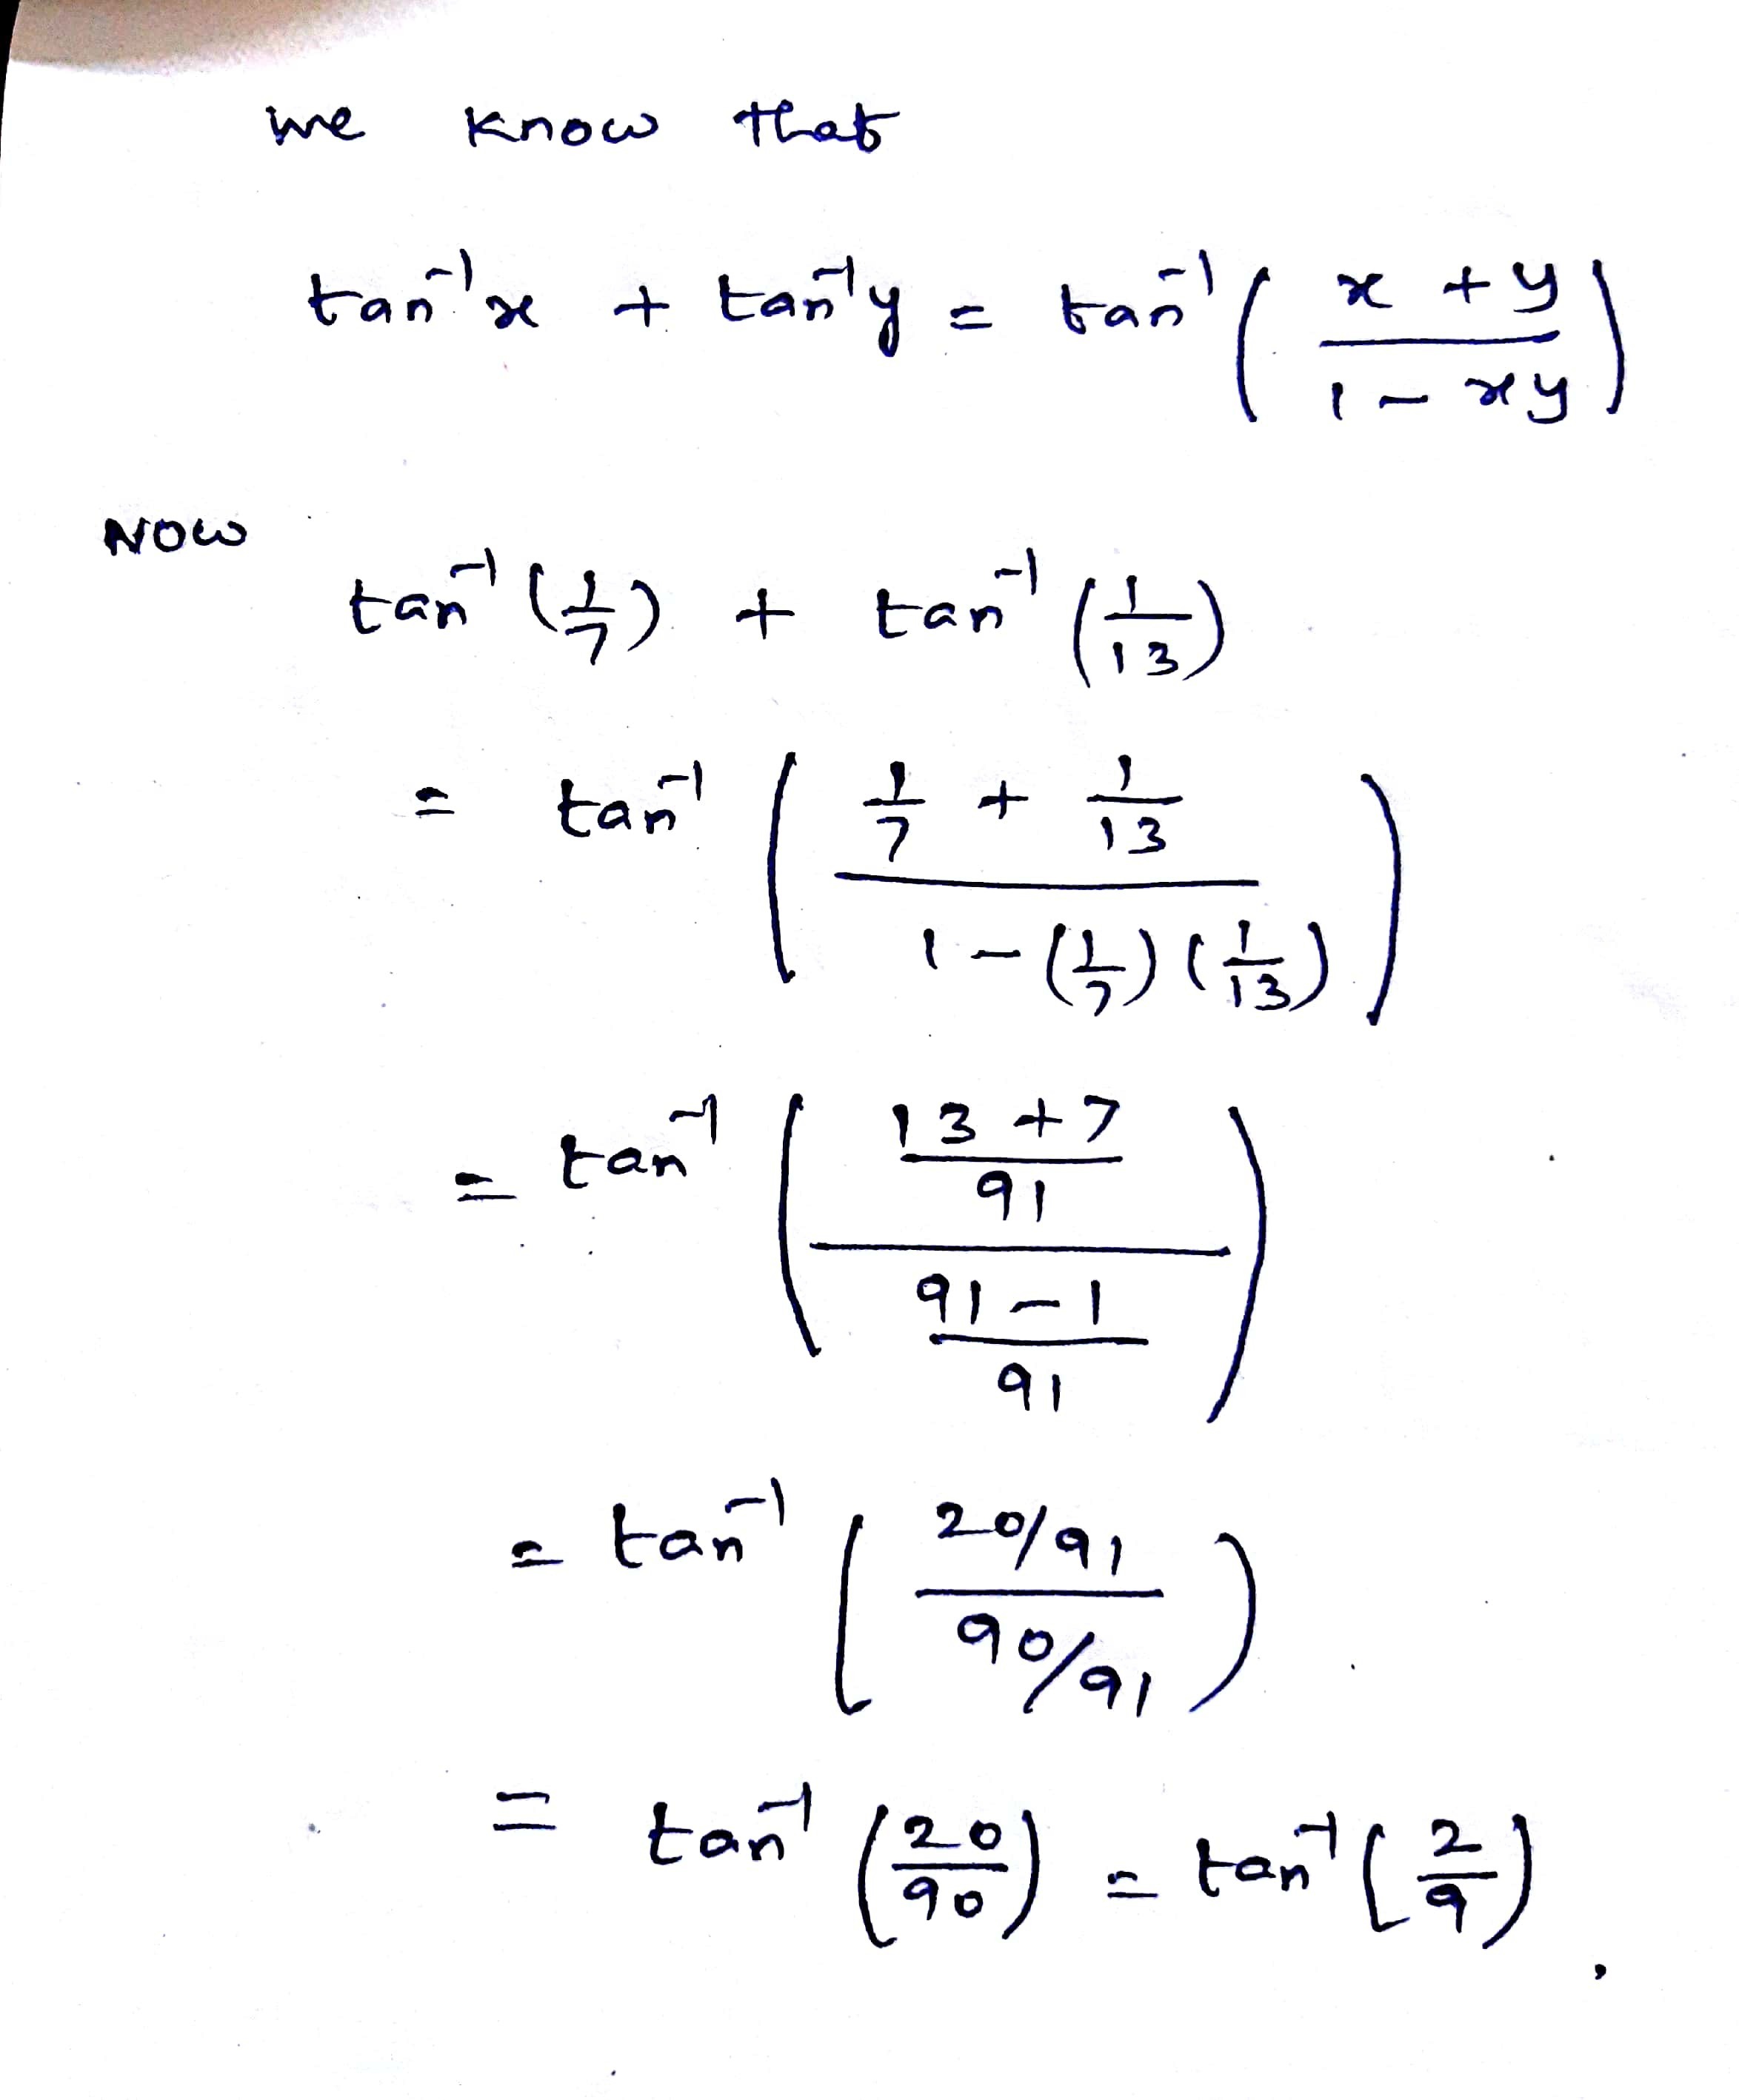 we know that
tan⁻¹x + tan⁻¹y = tan⁻¹((x + y)/(1 - xy))
NOW
tan⁻¹(1/7) + tan⁻¹(1/13)
= tan⁻¹((1/7 + 1/13)/(1 - (1/7)(1/13)))
= tan⁻¹(((13 + 7)/91)/((91 - 1)/91))
= tan⁻¹((20/91)/(90/91))
= tan⁻¹(20/90) = tan⁻¹(2/9),